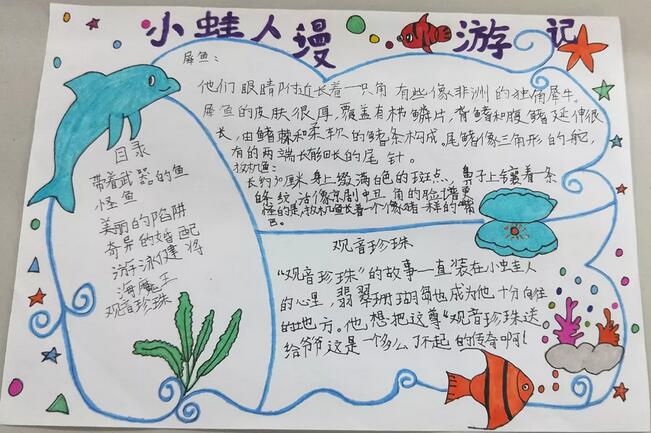 小蛙人漫游记
犀鱼：
他们眼睛附近长着一只角有些像非洲的独角犀牛。
犀鱼的皮肤很厚，覆盖有栉鳞片，背鳍和腹鳍延伸很
长，由鳍棘和柔软的鳍条构成。尾鳍像三角形的舵，
有的两端长着细长的尾针。
长约30厘米身上缀满白色的斑点，鼻子上镶着一条
条纹活像京剧中丑角的脸谱更
怪的是，长着一个像猪一样的嘴
巴。
目录
带着武器的鱼
怪鱼
美丽的陷阱
奇异的婚配
游泳健将
海魔王
观音珍珠
观音珍珠
“观音珍珠”的故事一直装在小蛙人
的心里，翡翠珊瑚岛也成为他十分向往
的地方。他想把这尊“观音珍珠送
给爷爷这是一个多么了不起的传奇啊！